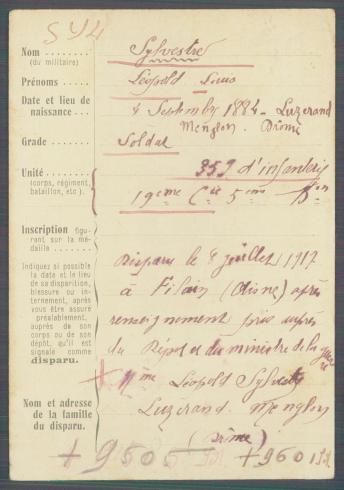 SY4
Nom ....... Sylvestre
(du militaire)
Prénoms ..... Léopold
Date et lieu de
naissance ... 4 Septembre 1884 - Luzerand
Menglon. Drôme
Grade ...... Soldat
Unité ....... 359 d'infanterie
(corps, régiment,
bataillon, etc.) 19eme Cie 5eme Bon
Inscription figu-
rant sur la mé-
daille .......
Indiquez si possible
la date et le lieu
de sa disparition,
blessure ou in-
ternement, après
vous être assuré
préalablement,
auprès de son
corps ou de son
dépôt, qu'il est
signalé comme
disparu.
disparu le 8 juillet 1917
à Filain (Aisne) après
renseignement pris auprès
du Dépot et du ministre de la guerre
+ Mme Léopold Sylvestre
Nom et adresse
de la famille
du disparu.
Luzerand. Menglon
(Drôme)
+ 9505 + 9601